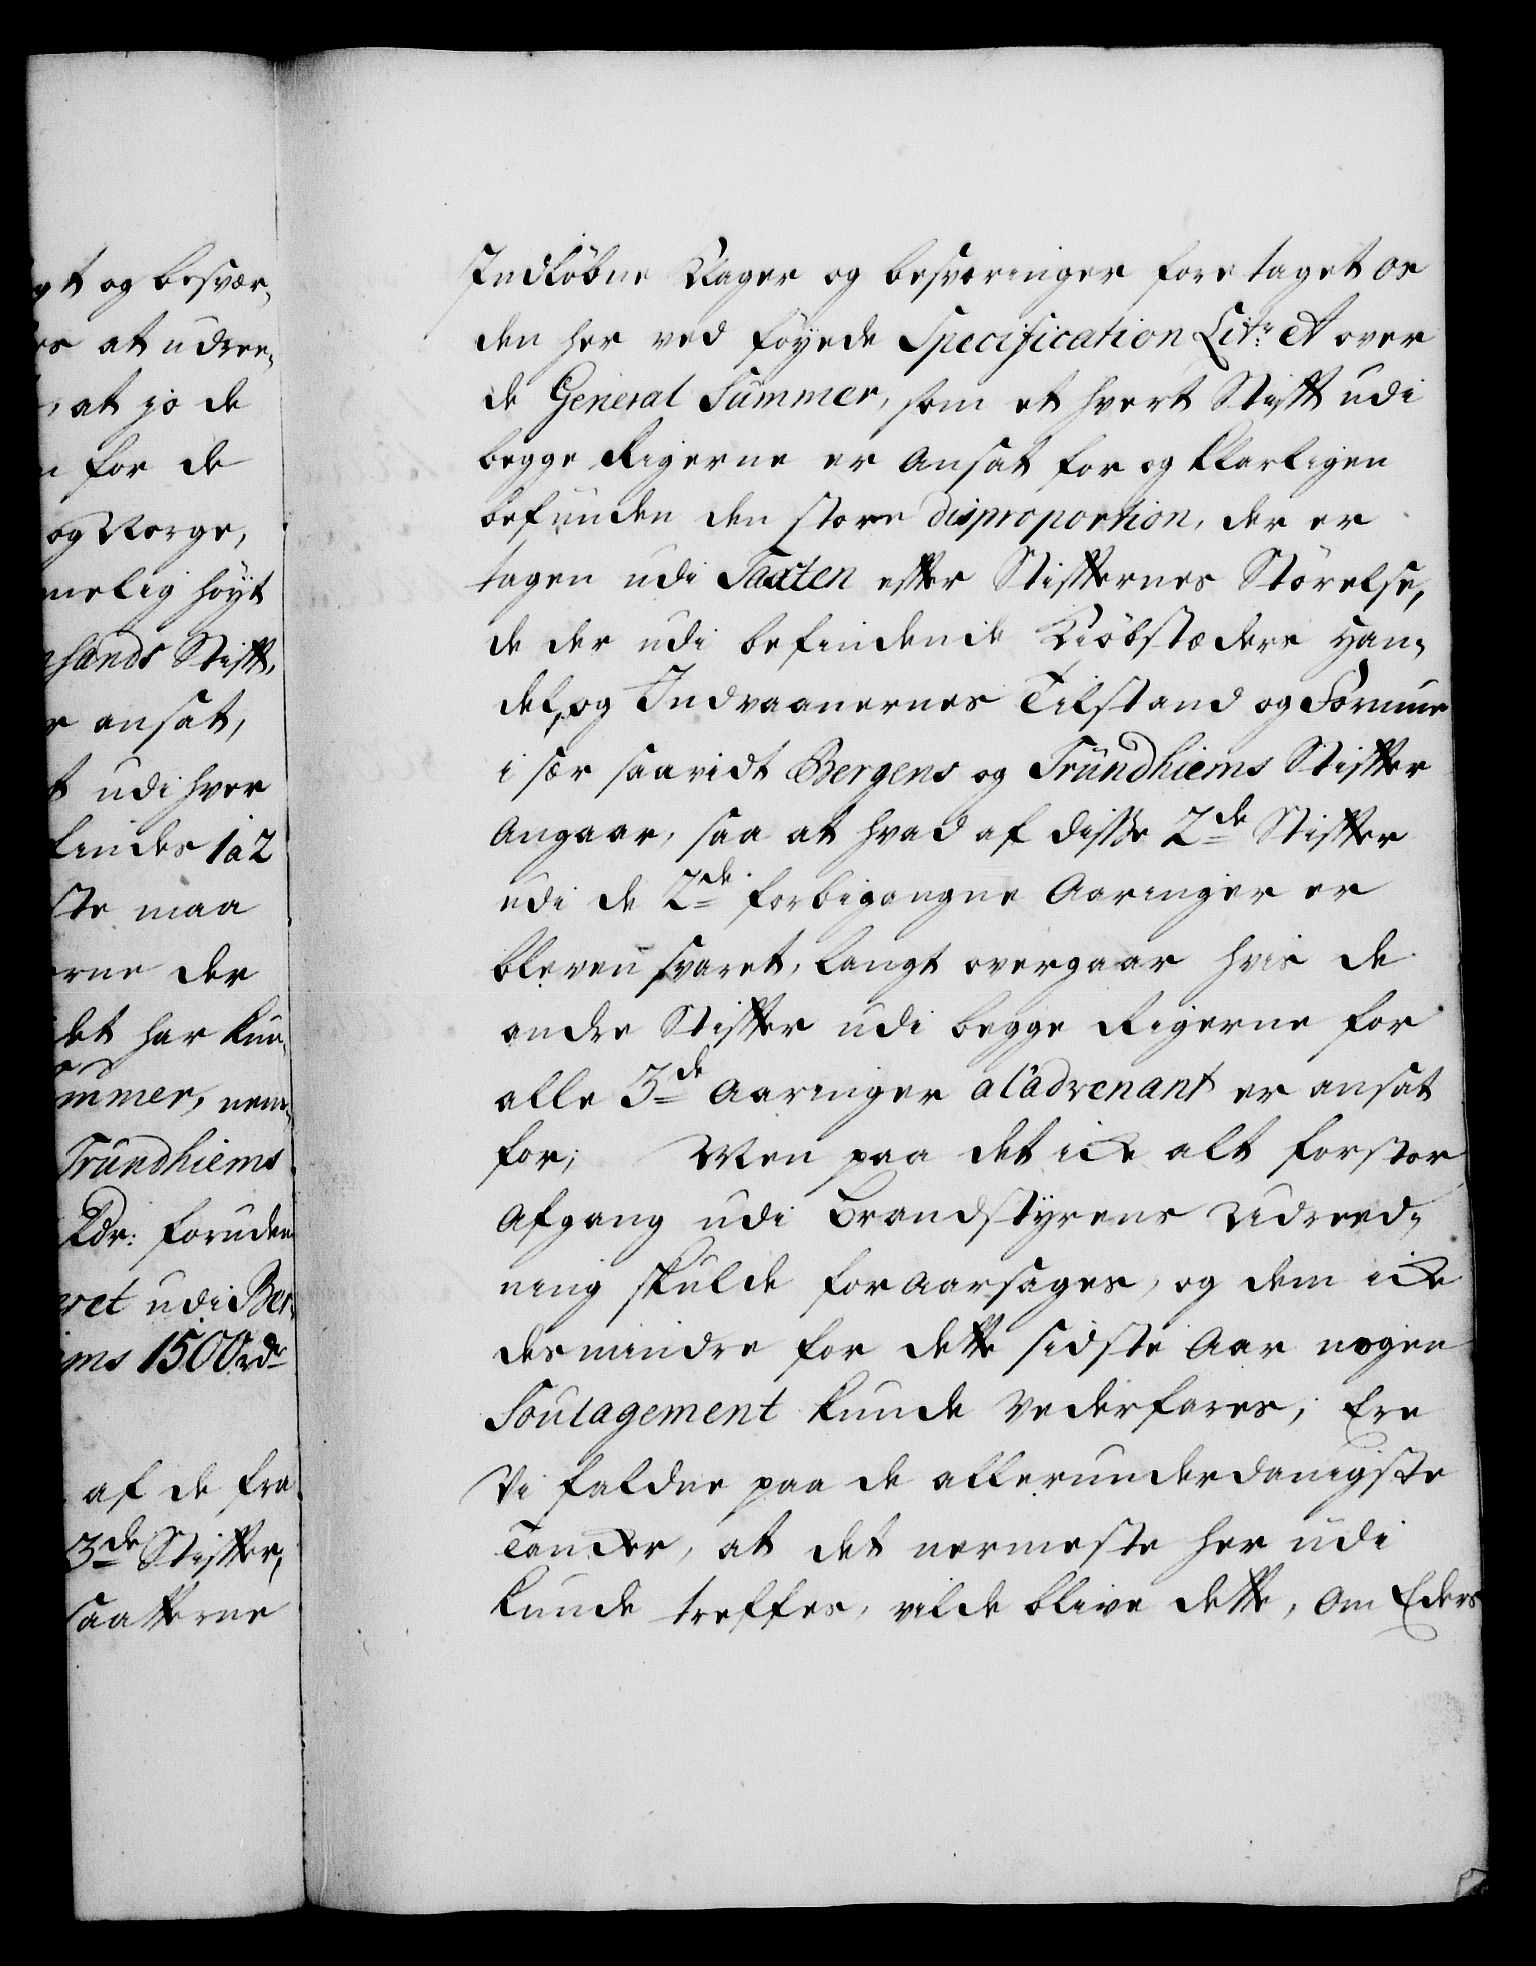 gt og besvær-
es at udree-
at jo de
for de
og Norge,
melig høyt
sands Stift,
r ansat,
t udi hver
findes 1 a 2
ste maa
erne der
det har kun-
ummer, nem-
Trundhiems
Rdr: foruden
eret udi Ber-
ims 1500 rdr
af de fra
3de Stifter,
saatterne
Indkòbne Klager og besværinger foretaget os
den her ved föyede Specification Litr: A over
de General Summer, som et hvert Stift udi
begge Rigerne er Ansat for og klarligen
befunden den store disproportion, der er
tagen udi Taxten efter Stifternes Störelse,
de der udi befindende Kiöbstæders Han-
del, og Indvaanernes Tilstand og Formue
i sær saavidt Bergens og Trundhiems Stifter
Angaar, saa at hvad af disse 2de Stifter
udi de 2de forbigangne Aaringer er
bleven svaret, langt overgaar hvis de
andre Stifter udi begge Rigerne for
alle 3de Aaringer al'advenant er ansat
for; Men paa det icke alt forstor
Afgang udi Brandstyrens Udreed-
ning skulde foraarsages, og dem icke
desmindre for dette sidste Aar nogen
Soulagement kunde vederfares; Ere
Vi faldne paa de allerunderdanigste
Tancker, at det nermeste her udi
kunde treffes, vilde blive dette, Om Eders